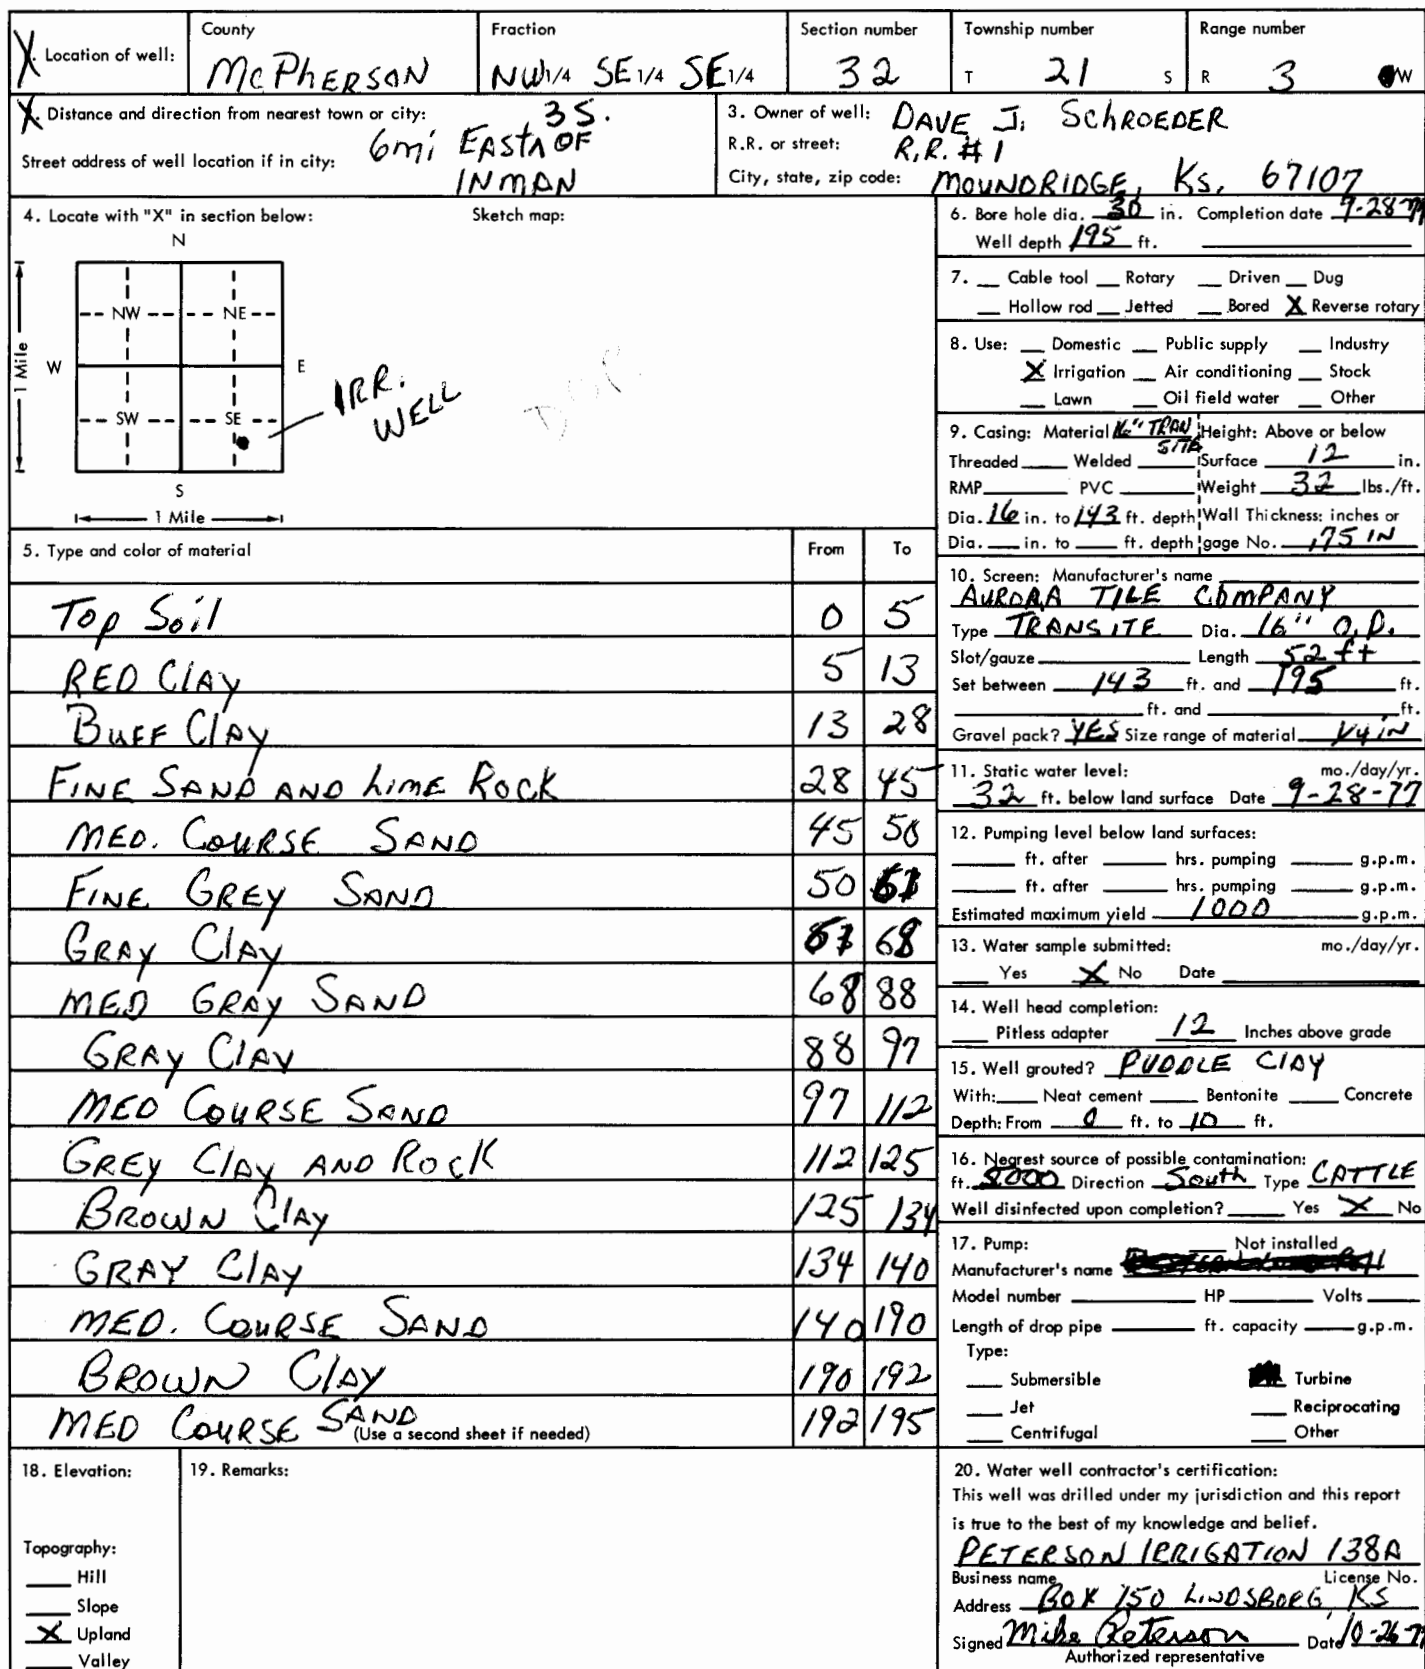 X. Location of well: County McPHERSON Fraction NW1/4 SE1/4 SE1/4 Section number 32 Township number T 21 S Range number R 3 W
X. Distance and direction from nearest town or city: 6mi EAST 3S. OF INMAN
Street address of well location if in city:
3. Owner of well: DAVE J. SCHROEDER
R.R. or street: R.R. #1
City, state, zip code: MOUNDRIDGE, KS, 67107
4. Locate with "X" in section below: Sketch map:
N
NW NE
W E
SW SE
S
1 Mile
1 Mile
IRR. WELL
5. Type and color of material From To
Top Soil 0 5
RED CLAY 5 13
BUFF CLAY 13 28
FINE SAND AND LIME ROCK 28 45
MED. COURSE SAND 45 50
FINE GREY SAND 50
GRAY CLAY 68
MED GRAY SAND 68 88
GRAY CLAY 88 97
MED COURSE SAND 97 112
GREY CLAY AND ROCK 112 125
BROWN CLAY 125 134
GRAY CLAY 134 140
MED. COURSE SAND 140 190
BROWN CLAY 190 192
MED COURSE SAND 192 195
(Use a second sheet if needed)
6. Bore hole dia. 30 in. Completion date 9-28-77
Well depth 195 ft.
7. Cable tool Rotary Driven Dug
Hollow rod Jetted Bored X Reverse rotary
8. Use: Domestic Public supply Industry
X Irrigation Air conditioning Stock
Lawn Oil field water Other
9. Casing: Material 16" TRANSITE Height: Above or below
Threaded Welded Surface 12 in.
RMP PVC Weight 32 lbs./ft.
Dia. 16 in. to 143 ft. depth Wall Thickness: inches or
Dia. in. to ft. depth gage No. .75 IN
10. Screen: Manufacturer's name
AURORA TILE COMPANY
Type TRANSITE Dia. 16" O.D.
Slot/gauze Length 52 ft
Set between 143 ft. and 195 ft.
ft. and ft.
Gravel pack? YES Size range of material 1/4 IN
11. Static water level: mo./day/yr.
32 ft. below land surface Date 9-28-77
12. Pumping level below land surfaces:
ft. after hrs. pumping g.p.m.
ft. after hrs. pumping g.p.m.
Estimated maximum yield 1000 g.p.m.
13. Water sample submitted: mo./day/yr.
Yes X No Date
14. Well head completion:
Pitless adapter 12 Inches above grade
15. Well grouted? PUDDLE CLAY
With: Neat cement Bentonite Concrete
Depth: From 0 ft. to 10 ft.
16. Nearest source of possible contamination:
ft. Direction South Type CATTLE
Well disinfected upon completion? Yes X No
17. Pump: Not installed
Manufacturer's name
Model number HP Volts
Length of drop pipe ft. capacity g.p.m.
Type:
Submersible Turbine
Jet Reciprocating
Centrifugal Other
18. Elevation:
Topography:
Hill
Slope
X Upland
Valley
19. Remarks:
20. Water well contractor's certification:
This well was drilled under my jurisdiction and this report
is true to the best of my knowledge and belief.
PETERSON IRRIGATION 138A
Business name License No.
Address BOX 150 LINDSBORG, KS
Signed Mike Peterson Date 10-26-77
Authorized representative